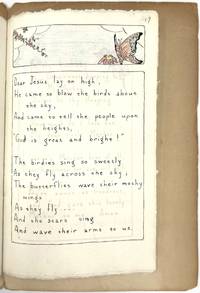 Dear Jesus lay on high,
He came to blow the birds about
the sky,
And came to tell the people upon
the heights,
"God is great and bright!"
The birdies sing so sweetly
As they fly across the sky;
The butterflies wave their meshy
wings
As they fly....
And the stars sing
And wave their arms to us.